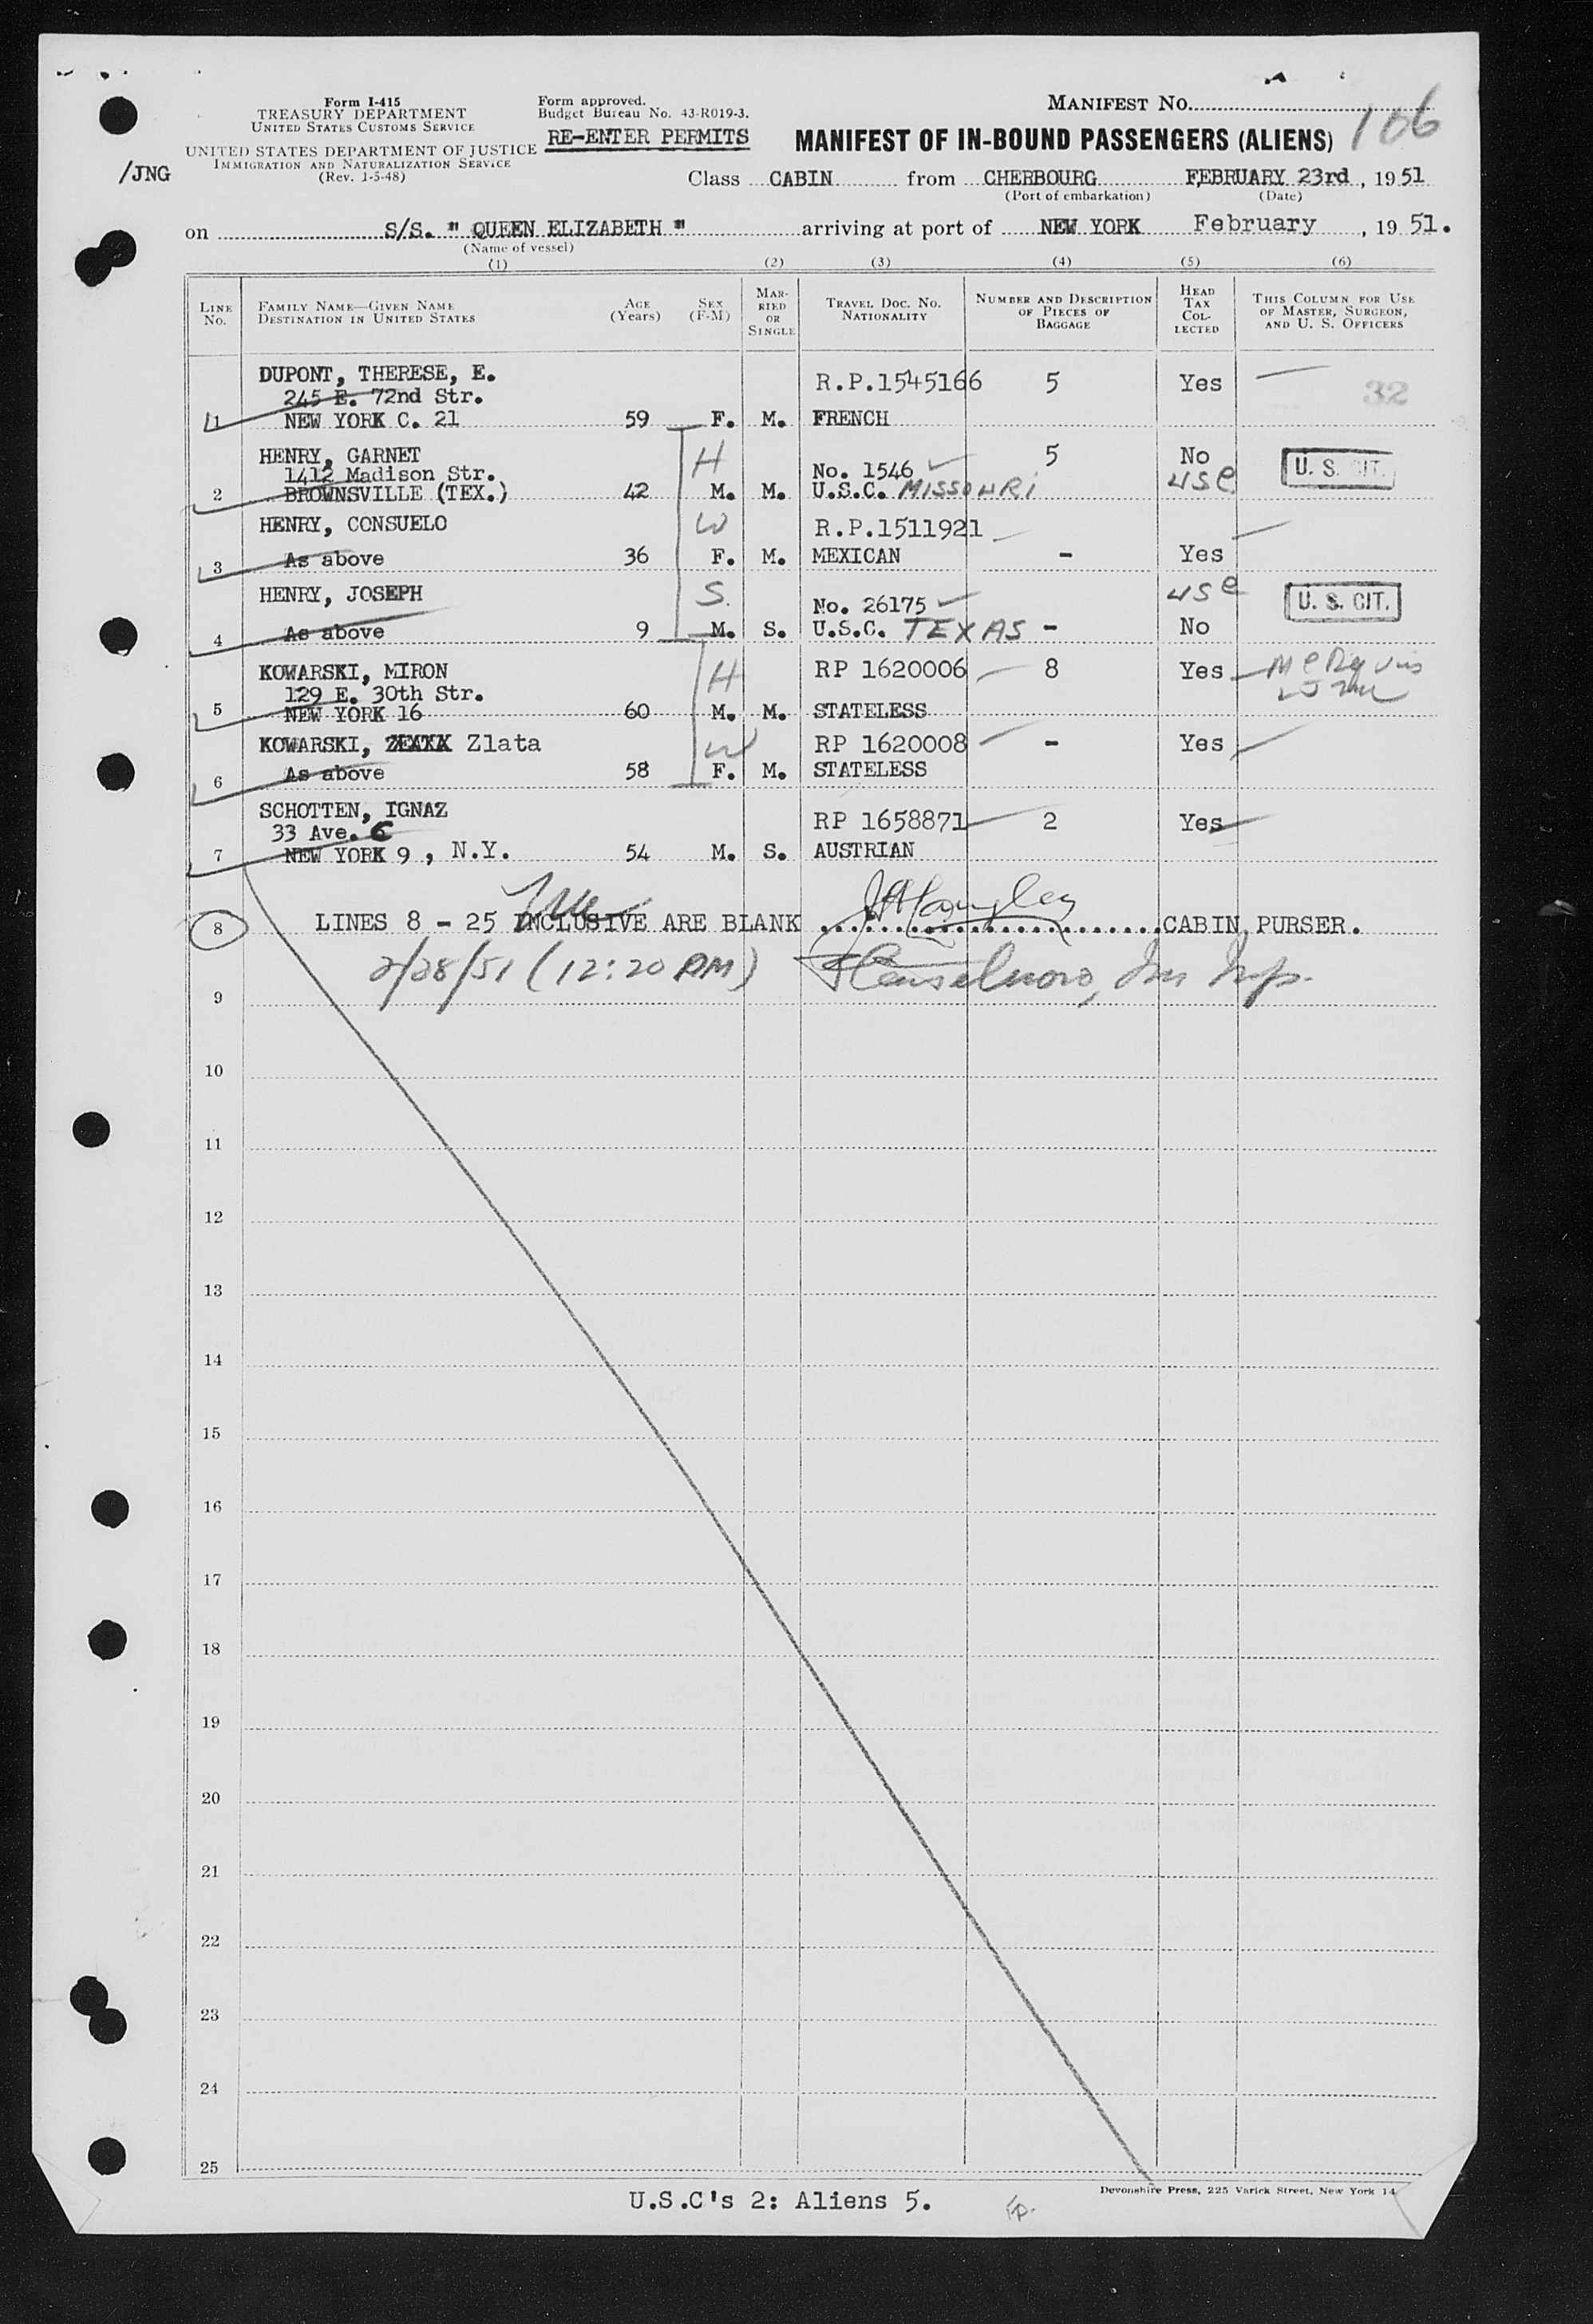 Form I-415
TREASURY DEPARTMENT
UNITED STATES CUSTOMS SERVICE
UNITED STATES DEPARTMENT OF JUSTICE
IMMIGRATION AND NATURALIZATION SERVICE
(Rev. 1-5-48)
/JNG
Form approved.
Budget Bureau No. 43-R019-3.
RE-ENTER PERMITS
MANIFEST NO.
106
MANIFEST OF IN-BOUND PASSENGERS (ALIENS)
Class CABIN from CHERBOURG FEBRUARY 23rd, 19 51
(Port of embarkation) (Date)
on S/S. " QUEEN ELIZABETH " arriving at port of NEW YORK February, 19 51.
(Name of vessel)
(1) (2) (3) (4) (5) (6)
LINE NO. FAMILY NAME—GIVEN NAME DESTINATION IN UNITED STATES AGE (Years) SEX (F-M) MARRIED OR SINGLE TRAVEL DOC. NO. NATIONALITY NUMBER AND DESCRIPTION OF PIECES OF BAGGAGE HEAD TAX COLLECTED THIS COLUMN FOR USE OF MASTER, SURGEON, AND U. S. OFFICERS
DUPONT, THERESE, E. R.P.1545166 5 Yes 32
245 E. 72nd Str.
1 NEW YORK C. 21 59 F. M. FRENCH
HENRY, GARNET H 5 No U. S. CIT.
1412 Madison Str. No. 1546 USC
2 BROWNSVILLE (TEX.) 42 M. M. U.S.C. MISSOURI
HENRY, CONSUELO W R.P.1511921
3 As above 36 F. M. MEXICAN - Yes
HENRY, JOSEPH S. No. 26175 USC U. S. CIT.
4 As above 9 M. S. U.S.C. TEXAS - No
KOWARSKI, MIRON H RP 1620006 8 Yes
129 E. 30th Str.
5 NEW YORK 16 60 M. M. STATELESS
KOWARSKI, Zlata W RP 1620008 - Yes
6 As above 58 F. M. STATELESS
SCHOTTEN, IGNAZ RP 1658871 2 Yes
33 Ave. C
7 NEW YORK 9, N.Y. 54 M. S. AUSTRIAN
8 LINES 8 - 25 INCLUSIVE ARE BLANK CABIN PURSER.
2/28/51 (12:20 PM)
9
10
11
12
13
14
15
16
17
18
19
20
21
22
23
24
25
Devonshire Press, 225 Varick Street, New York 14
U.S.C's 2: Aliens 5.